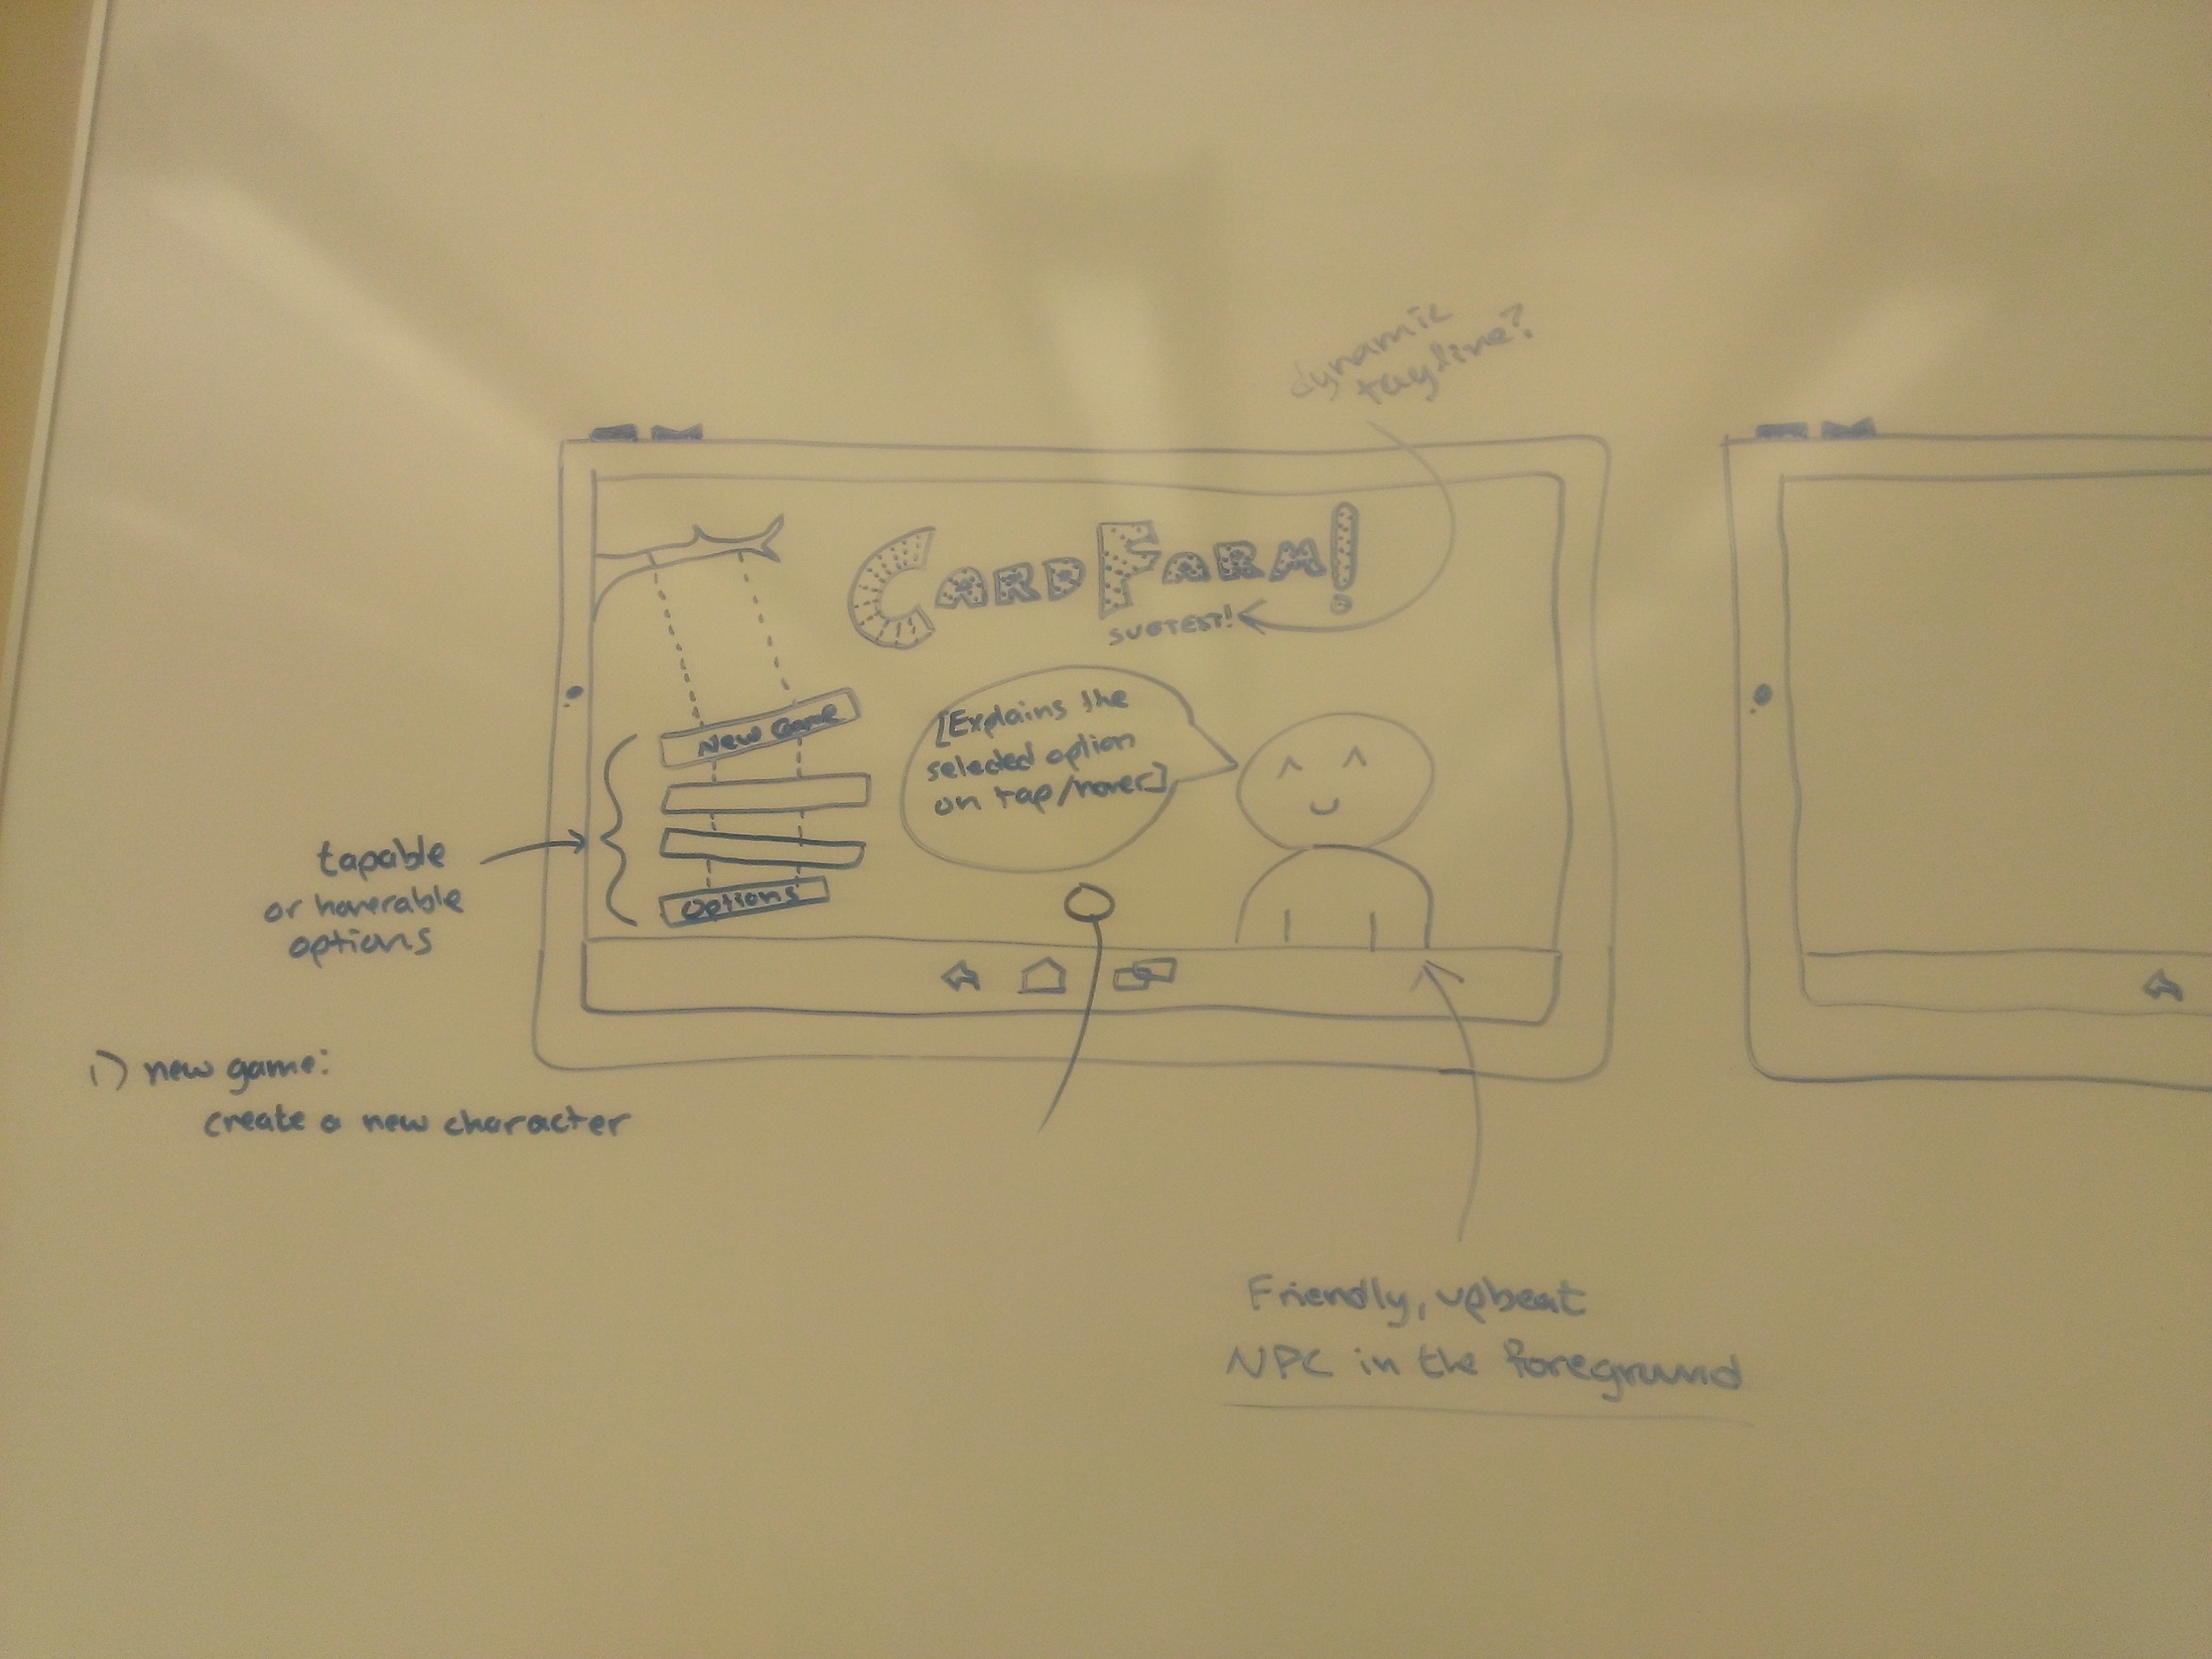 dynamic
tagline?
CARDFARM!
New Game
[Explains the
selected option
on tap/hover]
Options
tapable
or hoverable
options
1) new game:
create a new character
Friendly, upbeat
NPC in the foreground